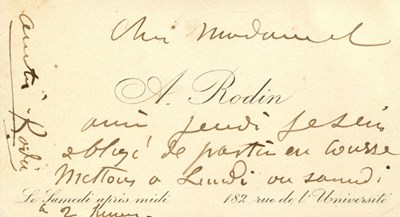 Cher Madame
A. Rodin
ami jeudi je suis
obligé de partir en course
Mettons à Lundi ou samedi
Le Samedi après midi 182 rue de l'Université
à 2 heures
Rodin